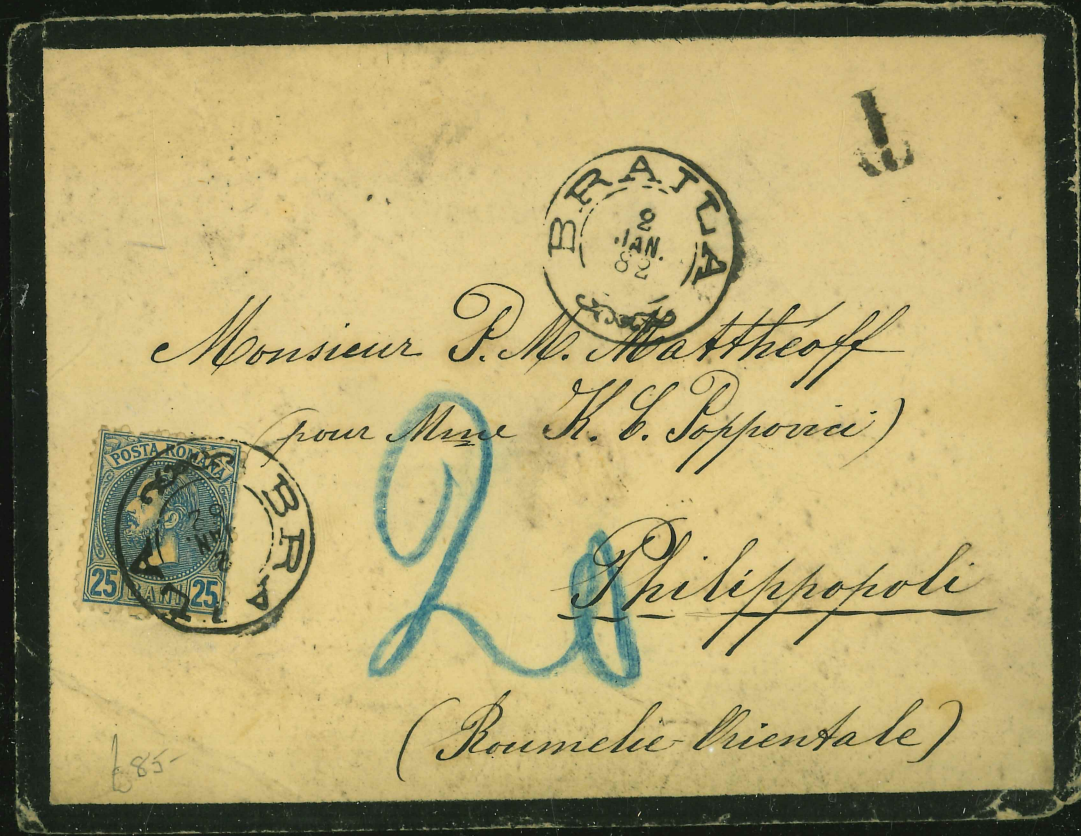 T
BRAILA
2
JAN.
82
Monsieur P. M. Matthéoff
(pour Mme K. C. Poppovici)
POSTA ROMANA
25 BANI 25
BRAILA
2
JAN
82
20
Philippopoli
(Roumelie Orientale)
85-